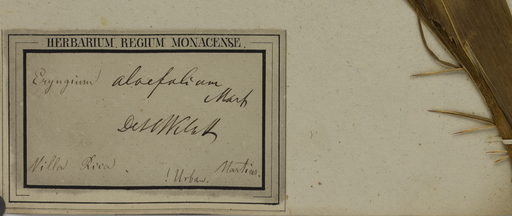 HERBARIUM REGIUM MONACENSE.
Eryngium aloefolium
Mart
Villa Rica.
! Urban. Martius.